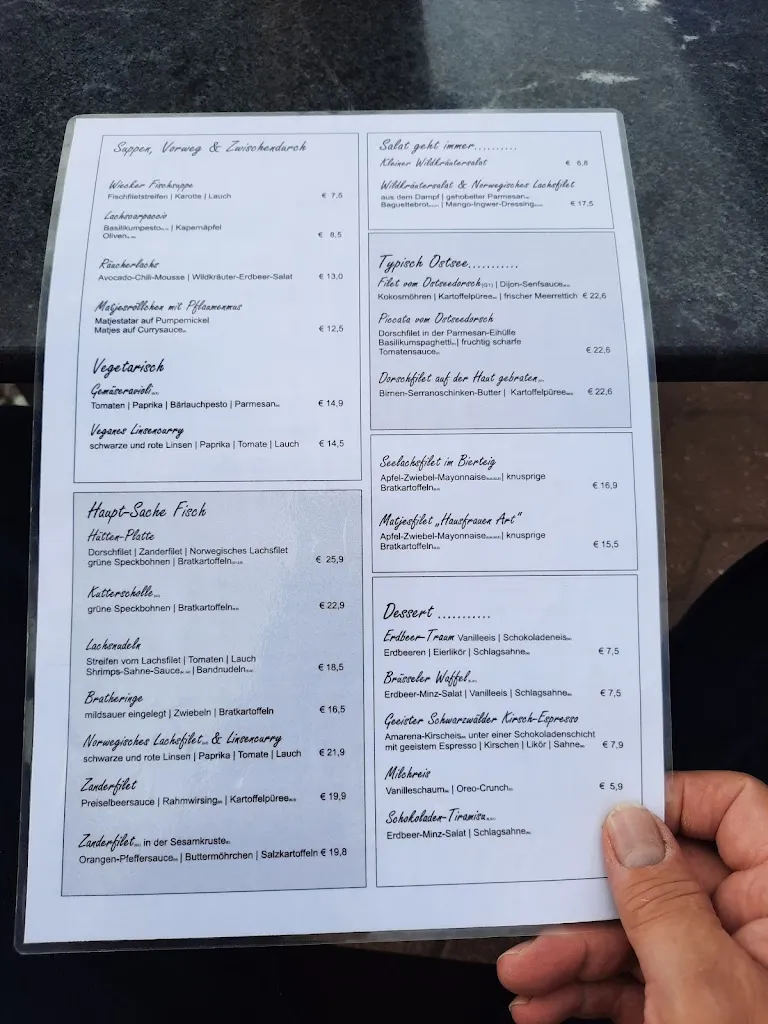 Suppen, Vorweg & Zwischendurch
Wiecker Fischsuppe
Fischfiletstreifen | Karotte | Lauch € 7,5
Lachscarpaccio
Basilikumpesto | Kapernäpfel
Oliven € 8,5
Räucherlachs
Avocado-Chili-Mousse | Wildkräuter-Erdbeer-Salat € 13,0
Matjesröllchen mit Pflaumenmus
Matjestatar auf Pumpernickel
Matjes auf Currysauce € 12,5
Vegetarisch
Gemüseravioli
Tomaten | Paprika | Bärlauchpesto | Parmesan € 14,9
Veganes Linsencurry
schwarze und rote Linsen | Paprika | Tomate | Lauch € 14,5
Haupt-Sache Fisch
Hütten-Platte
Dorschfilet | Zanderfilet | Norwegisches Lachsfilet
grüne Speckbohnen | Bratkartoffeln € 25,9
Kutterscholle
grüne Speckbohnen | Bratkartoffeln € 22,9
Lachsnudeln
Streifen vom Lachsfilet | Tomaten | Lauch
Shrimps-Sahne-Sauce | Bandnudeln € 18,5
Bratheringe
mildsauer eingelegt | Zwiebeln | Bratkartoffeln € 16,5
Norwegisches Lachsfilet & Linsencurry
schwarze und rote Linsen | Paprika | Tomate | Lauch € 21,9
Zanderfilet
Preiselbeersauce | Rahmwirsing | Kartoffelpüree € 19,9
Zanderfilet in der Sesamkruste
Orangen-Pfeffersauce | Buttermöhrchen | Salzkartoffeln € 19,8
Salat geht immer..........
Kleiner Wildkräutersalat € 6,8
Wildkräutersalat & Norwegisches Lachsfilet
aus dem Dampf | gehobelter Parmesan
Baguettebrot | Mango-Ingwer-Dressing € 17,5
Typisch Ostsee...........
Filet vom Ostseedorsch (G1) | Dijon-Senfsauce
Kokosmöhren | Kartoffelpüree | frischer Meerrettich € 22,6
Piccata vom Ostseedorsch
Dorschfilet in der Parmesan-Eihülle
Basilikumspaghetti | fruchtig scharfe
Tomatensauce € 22,6
Dorschfilet auf der Haut gebraten
Birnen-Serranoschinken-Butter | Kartoffelpüree € 22,6
Seelachsfilet im Bierteig
Apfel-Zwiebel-Mayonnaise | knusprige
Bratkartoffeln € 16,9
Matjesfilet „Hausfrauen Art"
Apfel-Zwiebel-Mayonnaise | knusprige
Bratkartoffeln € 15,5
Dessert ...........
Erdbeer-Traum Vanilleeis | Schokoladeneis
Erdbeeren | Eierlikör | Schlagsahne € 7,5
Brüsseler Waffel
Erdbeer-Minz-Salat | Vanilleeis | Schlagsahne € 7,5
Geeister Schwarzwälder Kirsch-Espresso
Amarena-Kirscheis unter einer Schokoladenschicht
mit geeistem Espresso | Kirschen | Likör | Sahne € 7,9
Milchreis
Vanilleschaum | Oreo-Crunch € 5,9
Schokoladen-Tiramisu
Erdbeer-Minz-Salat | Schlagsahne